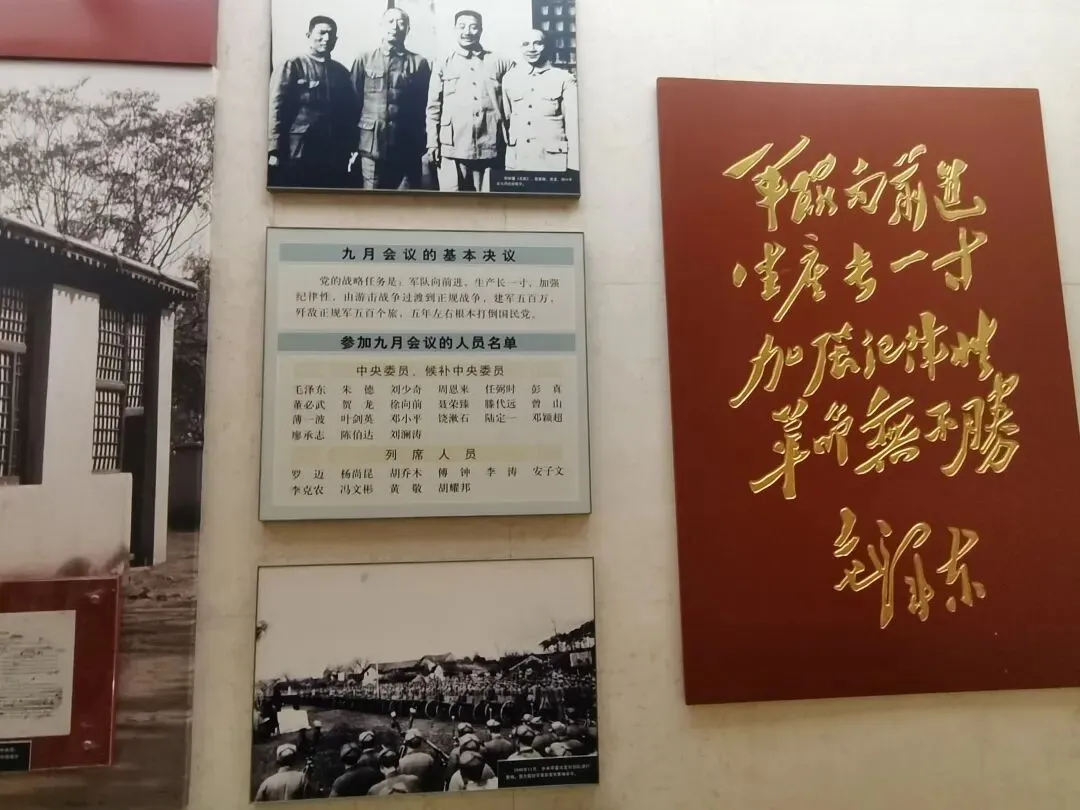 九月会议的基本决议
党的战略任务是：军队向前进，生产长一寸，加强
纪律性，由游击战争过渡到正规战争，建军五百万，
歼敌正规军五百个旅，五年左右根本打倒国民党。
参加九月会议的人员名单
中央委员、候补中央委员
毛泽东 朱德 刘少奇 周恩来 任弼时 彭真
董必武 贺龙 徐向前 聂荣臻 滕代远 曾山
薄一波 叶剑英 邓小平 饶漱石 陆定一 邓颖超
廖承志 陈伯达 刘澜涛
列席人员
罗迈 杨尚昆 胡乔木 傅钟 李涛 安子文
李克农 冯文彬 黄敬 胡耀邦
军队向前进
生产长一寸
加强纪律性
革命無不勝
毛泽东